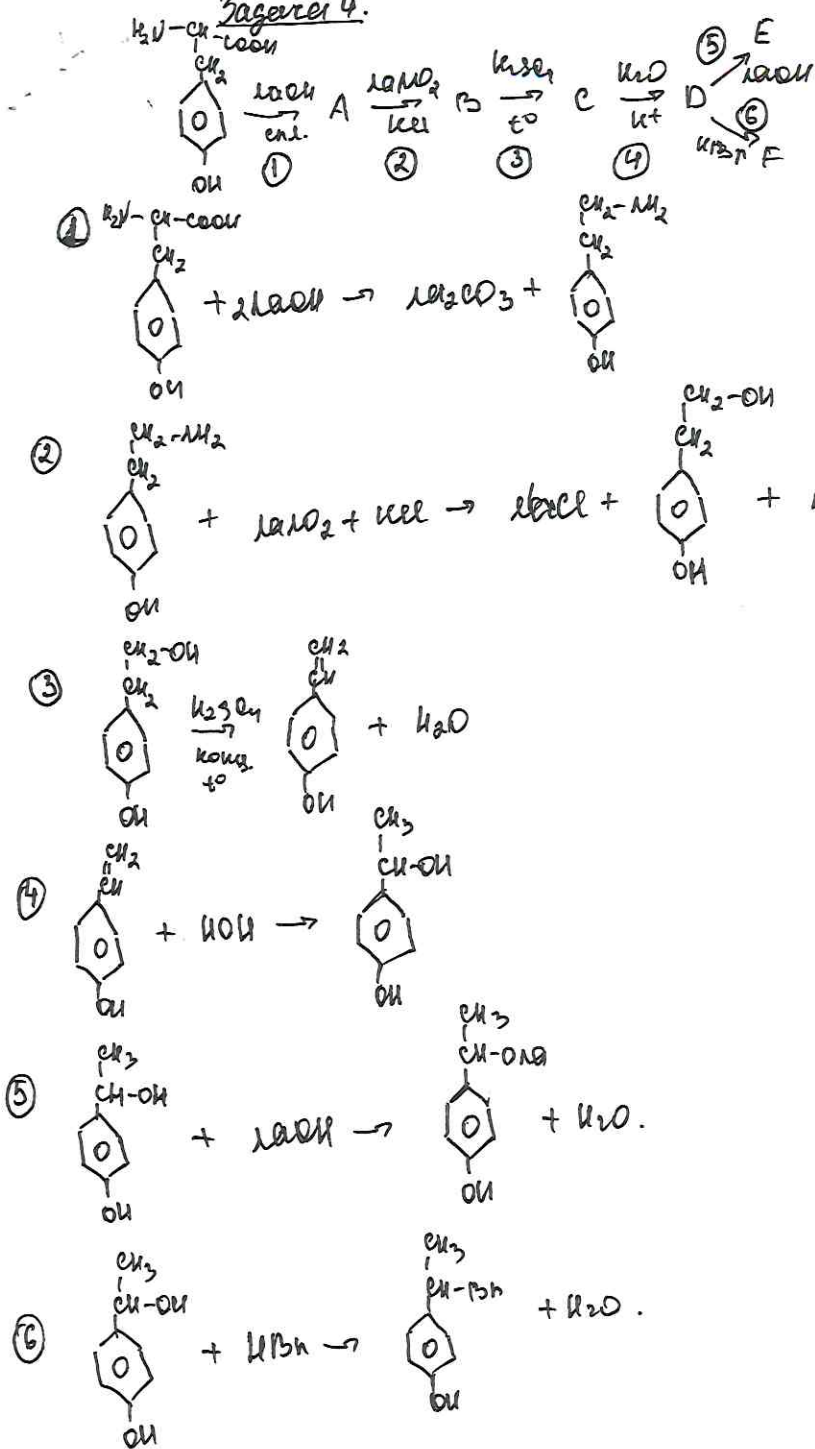 Задача 4.
H₂N-CH-COOH
CH₂
OH
NaOH
спл.
①
A
NaNO₂
HCl
②
B
H₂SO₄
t°
③
C
H₂O
H⁺
④
D
⑤ E
NaOH
⑥
HBr F
① H₂N-CH-COOH
CH₂
OH
+ 2NaOH → Na₂CO₃ +
CH₂-NH₂
CH₂
OH
② CH₂-NH₂
CH₂
OH
+ NaNO₂ + HCl → NaCl +
CH₂-OH
CH₂
OH
+
③ CH₂-OH
CH₂
OH
H₂SO₄
конц.
t°
CH₂
CH
OH
+ H₂O
④ CH₂
CH
OH
+ HOH →
CH₃
CH-OH
OH
⑤ CH₃
CH-OH
OH
+ NaOH →
CH₃
CH-ONa
OH
+ H₂O.
⑥ CH₃
CH-OH
OH
+ HBr →
CH₃
CH-Br
OH
+ H₂O.